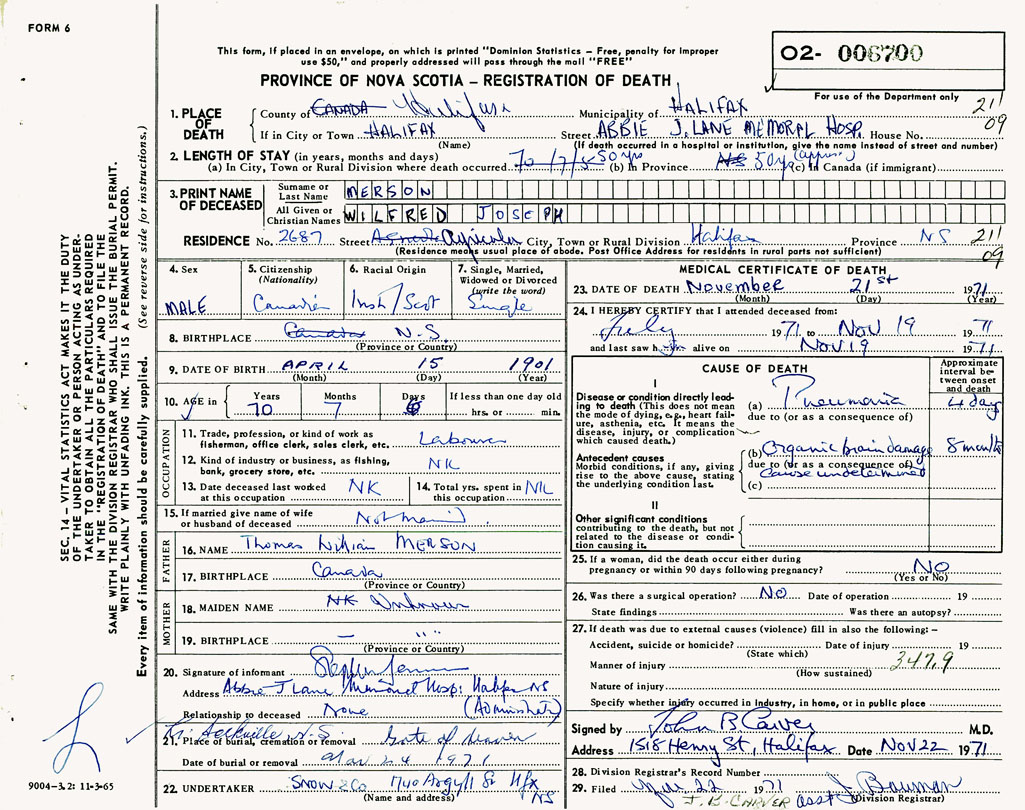 FORM 6
This form, if placed in an envelope, on which is printed "Dominion Statistics – Free, penalty for improper
use $50," and properly addressed will pass through the mail "FREE"
PROVINCE OF NOVA SCOTIA – REGISTRATION OF DEATH
O2- 006700
For use of the Department only
1. PLACE OF DEATH
County of CANADA Halifax Municipality of HALIFAX 211
If in City or Town HALIFAX Street ABBIE J. LANE MEMORAL HOSP. House No. 09
(Name) (If death occurred in a hospital or institution, give the name instead of street and number)
2. LENGTH OF STAY (in years, months and days)
(a) In City, Town or Rural Division where death occurred 70/7/5 50 yrs (b) In Province NS 50 yrs (approx) (c) In Canada (if immigrant)
3. PRINT NAME OF DECEASED
Surname or Last Name MERSON
All Given or Christian Names WILFRED JOSEPH
RESIDENCE No. 2687 Street Agricola City, Town or Rural Division Halifax Province NS 211
(Residence means usual place of abode. Post Office Address for residents in rural parts not sufficient) 09
4. Sex MALE
5. Citizenship (Nationality) Canadian
6. Racial Origin Irish/Scot
7. Single, Married, Widowed or Divorced (write the word) Single
8. BIRTHPLACE Canada N.S.
(Province or Country)
9. DATE OF BIRTH APRIL 15 1901
(Month) (Day) (Year)
10. AGE in Years 70 Months 7 Days 6 If less than one day old hrs. or min.
OCCUPATION
11. Trade, profession, or kind of work as fisherman, office clerk, sales clerk, etc. Labourer
12. Kind of industry or business, as fishing, bank, grocery store, etc. NK
13. Date deceased last worked at this occupation NK
14. Total yrs. spent in this occupation NK
15. If married give name of wife or husband of deceased Not Married
FATHER
16. NAME Thomas William MERSON
17. BIRTHPLACE Canada
(Province or Country)
MOTHER
18. MAIDEN NAME NK Unknown
19. BIRTHPLACE – " "
(Province or Country)
20. Signature of informant
Address Abbie J Lane Memorial Hosp: Halifax NS
Relationship to deceased None (Administrator)
Sackville N.S.
21. Place of burial, cremation or removal Gate of Heaven
Date of burial or removal Nov 24 1971
22. UNDERTAKER SNOW & Co 1740 Argyll St Hfx NS
(Name and address)
MEDICAL CERTIFICATE OF DEATH
23. DATE OF DEATH November 21st 1971
(Month) (Day) (Year)
24. I HEREBY CERTIFY that I attended deceased from:
July 1971 to Nov 19 1971
and last saw him alive on Nov 19 1971
CAUSE OF DEATH
Approximate interval between onset and death
I
Disease or condition directly leading to death (This does not mean the mode of dying, e.g., heart failure, asthenia, etc. It means the disease, injury, or complication which caused death.)
(a) Pneumonia 4 days
due to (or as a consequence of)
Antecedent causes
Morbid conditions, if any, giving rise to the above cause, stating the underlying condition last.
(b) Organic brain damage 8 months
due to (or as a consequence of)
Cause undetermined
(c)
II
Other significant conditions
contributing to the death, but not related to the disease or condition causing it.
25. If a woman, did the death occur either during pregnancy or within 90 days following pregnancy? NO
(Yes or No)
26. Was there a surgical operation? NO Date of operation 19
State findings Was there an autopsy?
27. If death was due to external causes (violence) fill in also the following: –
Accident, suicide or homicide? Date of injury 19
(State which)
Manner of injury 347.9
(How sustained)
Nature of injury
Specify whether injury occurred in industry, in home, or in public place
Signed by John B. Carver M.D.
Address 1518 Henry St, Halifax Date Nov 22 1971
28. Division Registrar's Record Number
29. Filed Nov 22 1971 asst J Bauman
J. B. CARVER (Division Registrar)
SEC. 14 – VITAL STATISTICS ACT MAKES IT THE DUTY
OF THE UNDERTAKER OR PERSON ACTING AS UNDER-
TAKER TO OBTAIN ALL THE PARTICULARS REQUIRED
IN THE "REGISTRATION OF DEATH" AND TO FILE THE
SAME WITH THE DIVISION REGISTRAR WHO SHALL ISSUE THE BURIAL PERMIT.
WRITE PLAINLY WITH UNFADING INK. THIS IS A PERMANENT RECORD.
Every item of information should be carefully supplied. (See reverse side for instructions.)
9004-3.2: 11-3-65